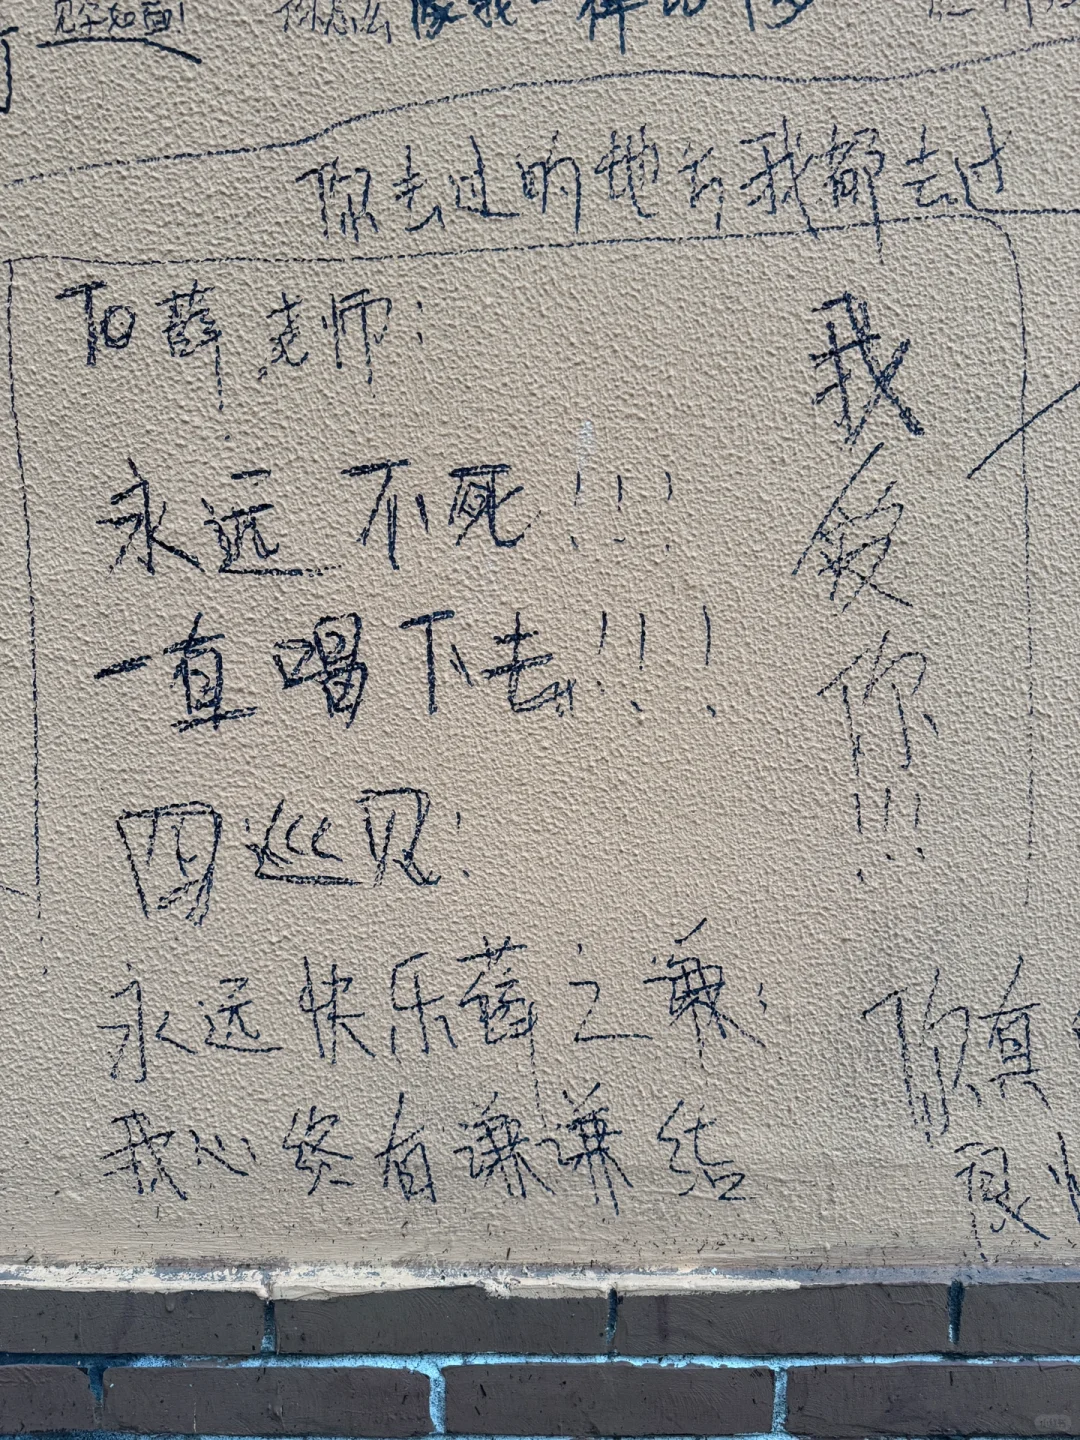 见字如面!
你怎么
像我一样
你去过的地方我都去过
To 薛老师:
永远不死!!!
一直唱下去!!!
四巡见!
永远快乐薛之谦!
我心终有谦谦结
我爱你!!!
你真
很